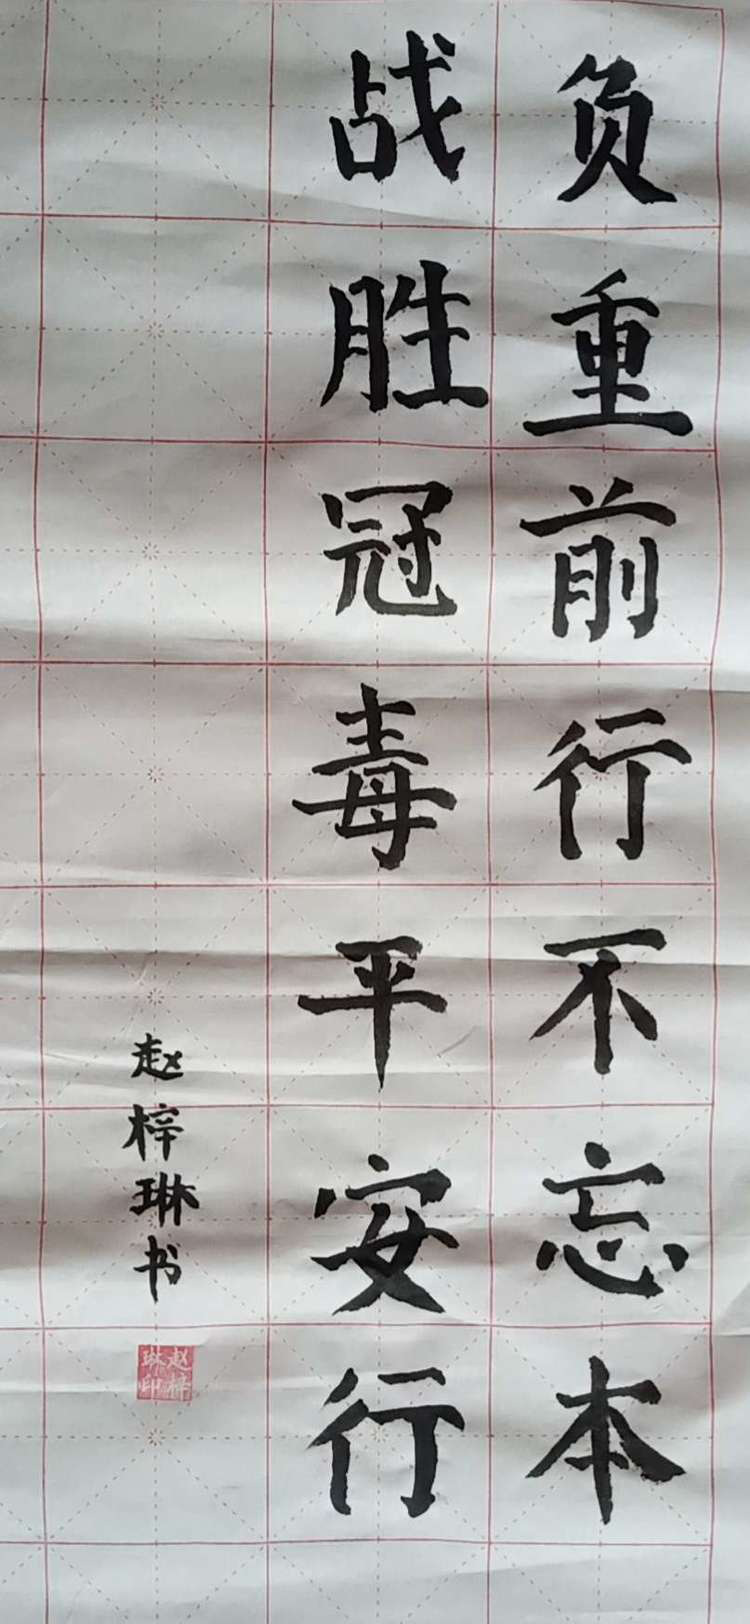 负重前行不忘本
战胜冠毒平安行
赵梓琳书
赵梓琳印